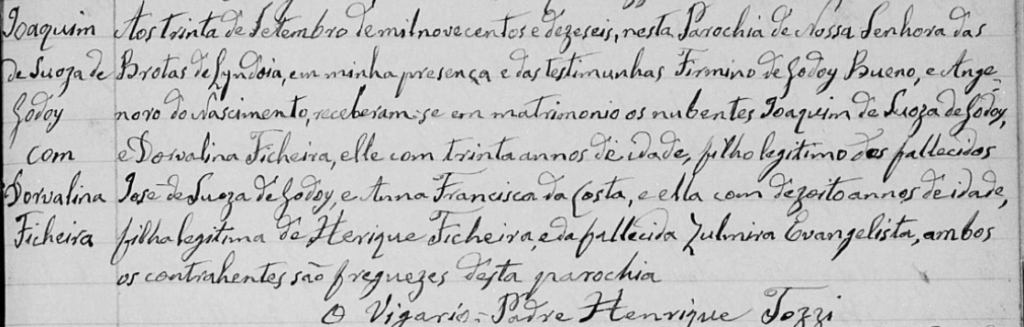 Joaquim
de Suoza de
Godoy
com
Dorvalina
Ficheira
Aos trinta de Setembro de mil novecentos e dezeseis, nesta Parochia de Nossa Senhora das
Brotas de Lyndoia, em minha presença e das testimunhas Firmino de Godoy Bueno, e Ange-
noro do Nascimento, receberam-se em matrimonio os nubentes Joaquim de Suoza de Godoy,
e Dorvalina Ficheira, elle com trinta annos de idade, filho legitimo dos fallecidos
José de Suoza de Godoy, e Anna Francisca da Costa, e ella com dezoito annos de idade,
filha legitima de Herique Ficheira, e da fallecida Zulmira Evangelista, ambos
os contrahentes são freguezes desta parochia
O Vigario: Padre Henrique Tozzi